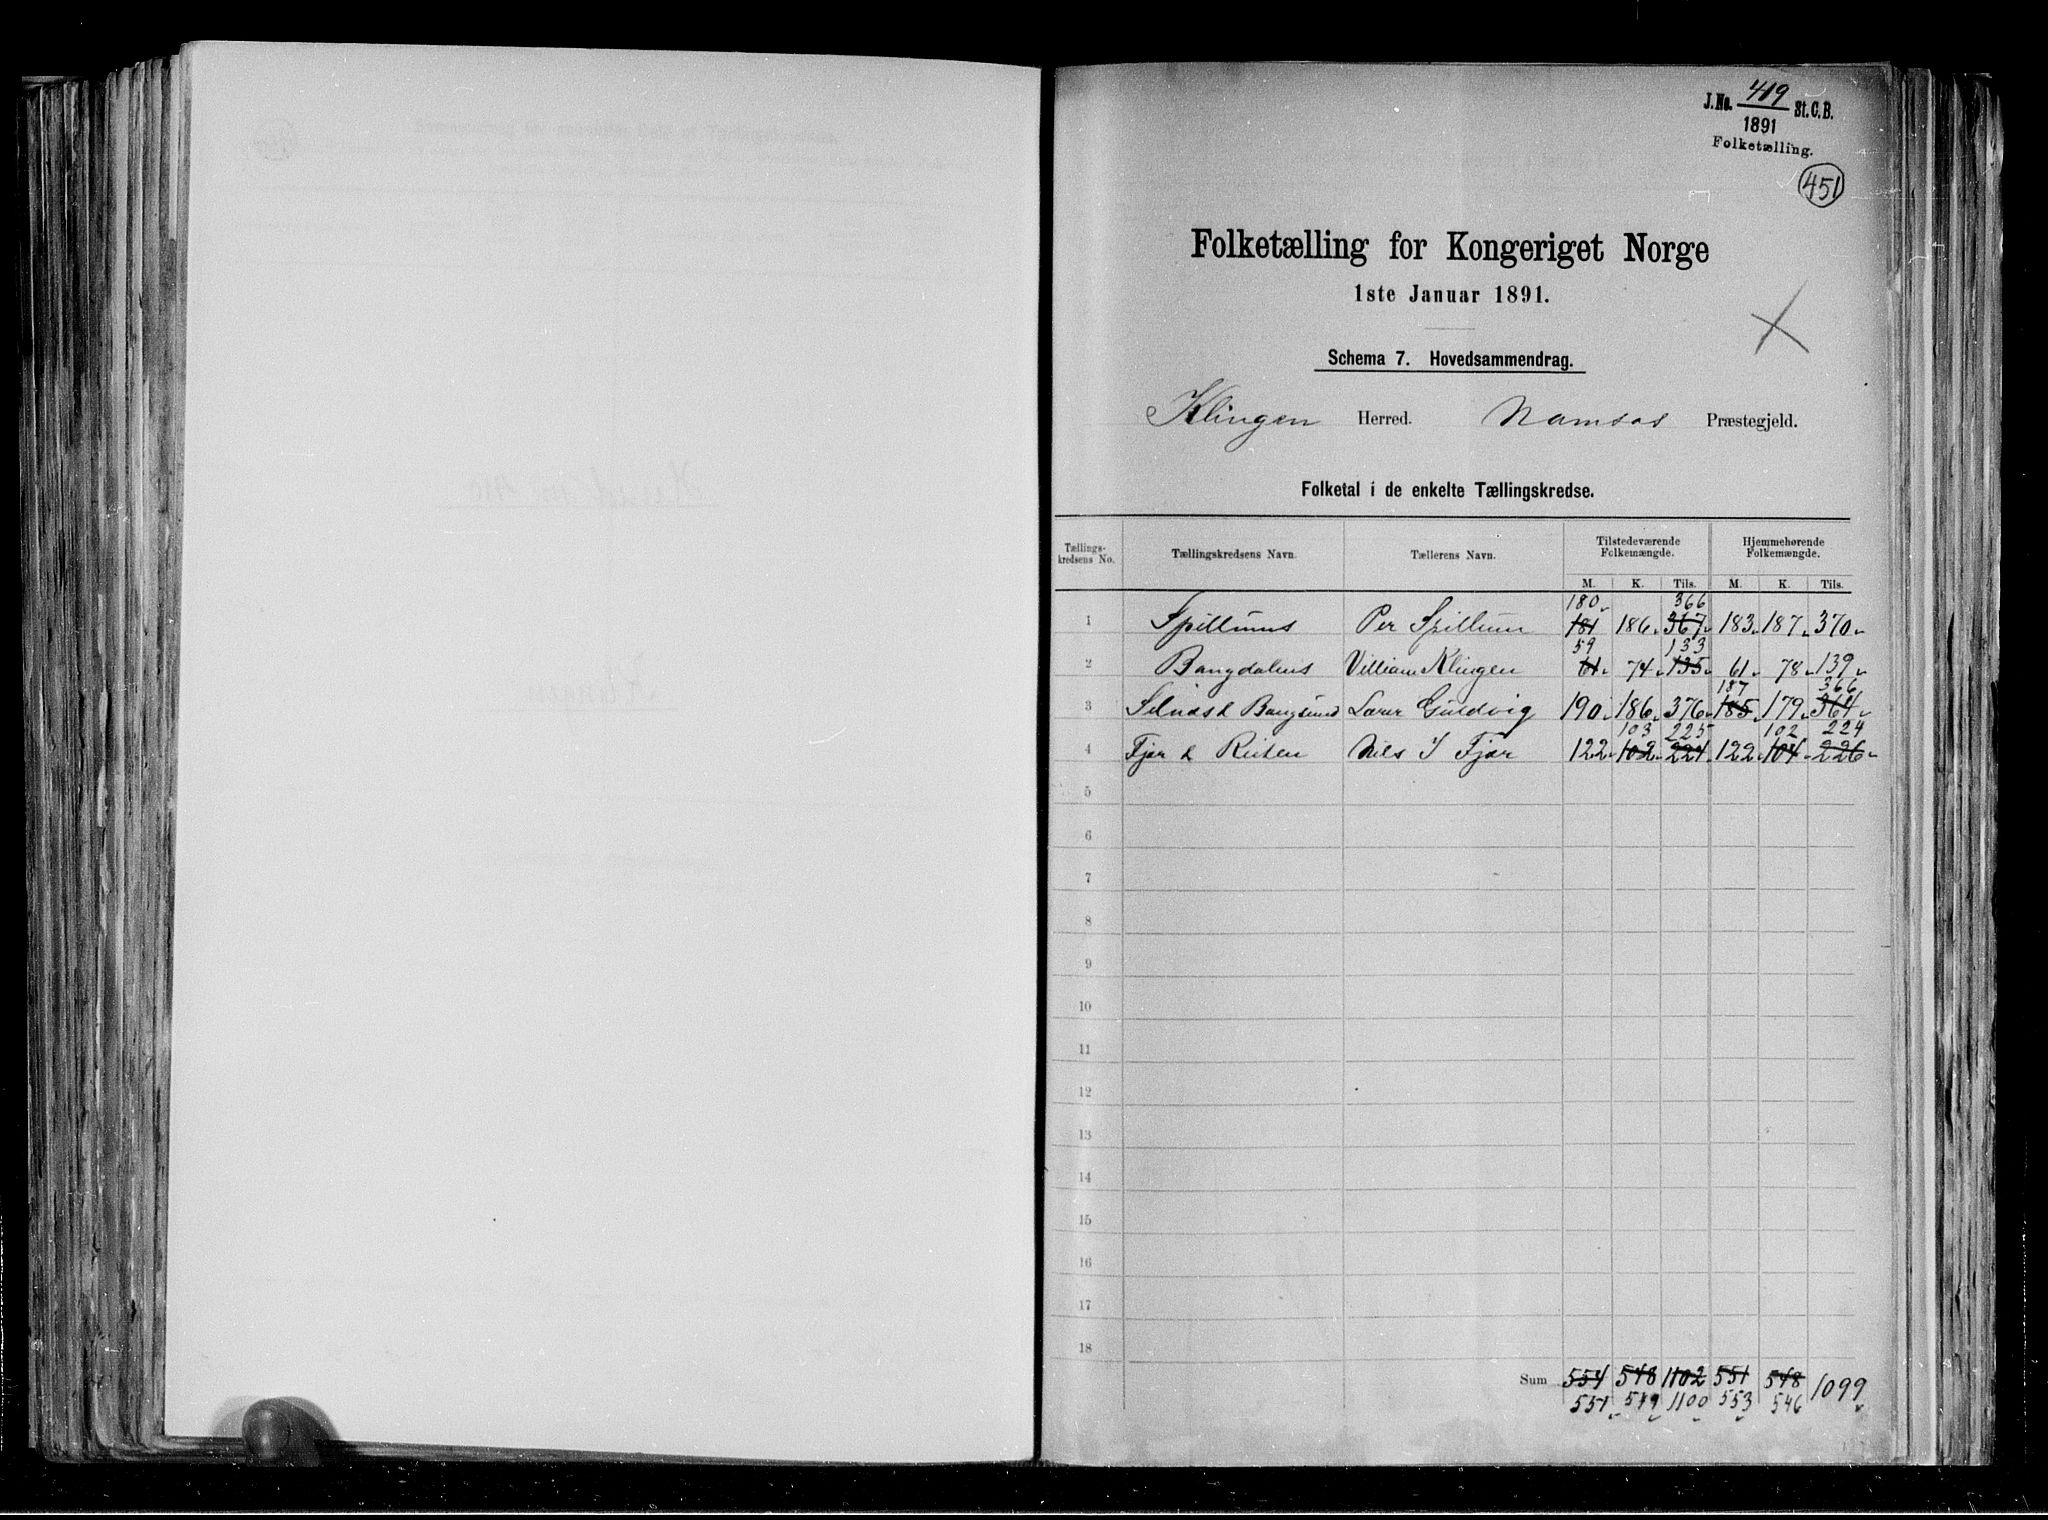 J.No. 419 St.C.B.
1891
Folketælling.
451
Folketælling for Kongeriget Norge
1ste Januar 1891.
Schema 7. Hovedsammendrag.
Klingen Herred. Namsos Præstegjeld.
Folketal i de enkelte Tællingskredse.
Tællings-kredsens No. Tællingskredsens Navn. Tællerens Navn. Tilstedeværende Folkemængde. Hjemmehørende Folkemængde.
M. K. Tils. M. K. Tils.
180 366
1 Spillums Per Spillum 181 186 367 183 187 370
59 133
2 Bangdalens Villiam Klingen 61 74 135 61 78 139
187 366
3 Bangsund Lærer Guldvig 190 186 376 185 179 364
103 225 102 224
4 Fjær & Reiten Nils J Fjær 122 102 224 122 104 226
5
6
7
8
9
10
11
12
13
14
15
16
17
18
Sum 554 548 1102 551 548 1099
551 549 1100 553 546